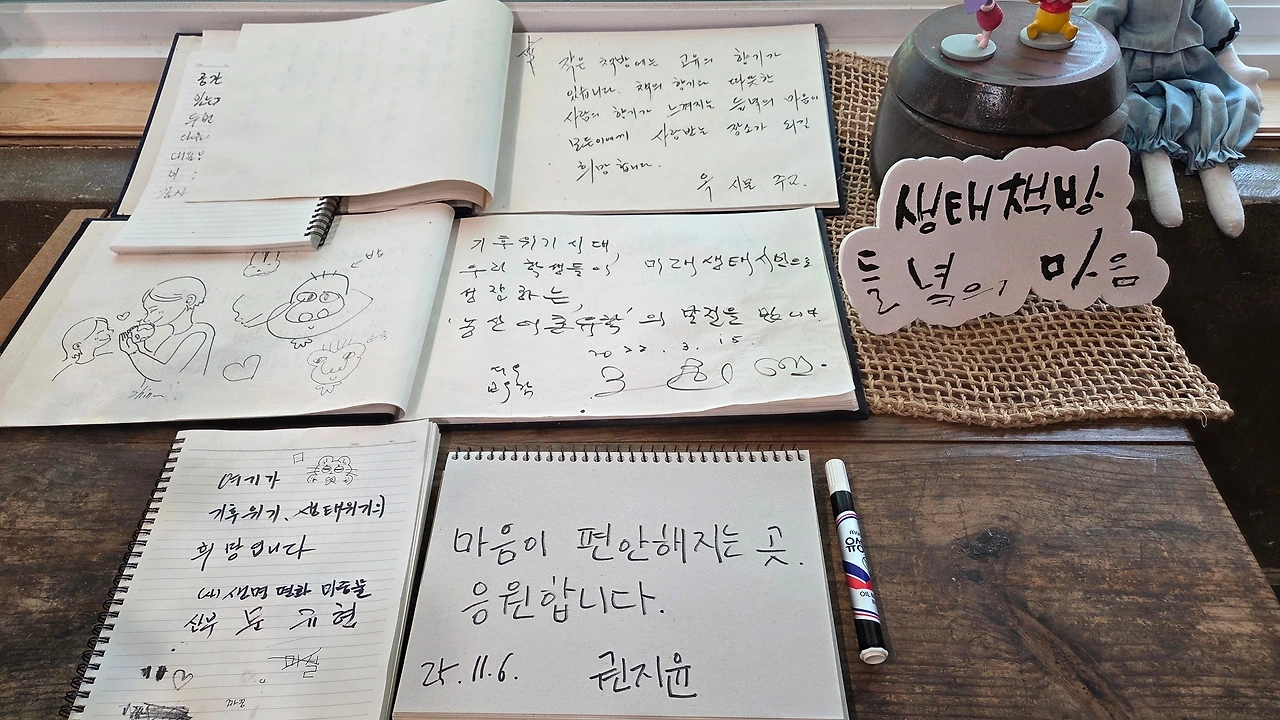 공간
작은 책방에는 고유의 향기가
있습니다. 책의 향기와 따뜻한
사람의 향기가 느껴지는 들녘의 마음이
모든이에게 사랑받는 장소가 되길
희망합니다.
생태책방
들녘의 마음
밥
기후위기 시대,
우리 학생들이, 미래생태시민으로
성장하는,
'농산어촌유학'의 발전을 빕니다.
2022. 3. 15.
여기가
기후위기, 생태위기의
희망입니다
(사)생명 평화 마중물
신부 문 규현
마음이 편안해지는 곳.
응원합니다.
25.11.6. 권지윤